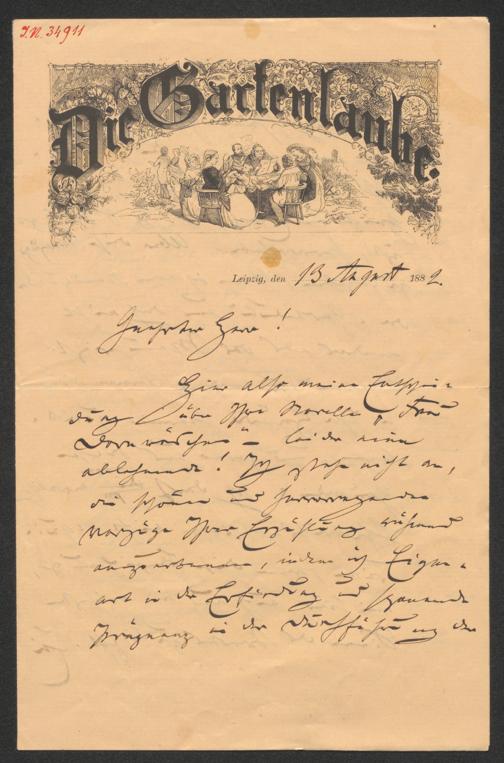 I.N. 34911
Die Gartenlaube.
Leipzig, den 13 August 1882.
Geehrter Herr!
Hier also meine Entschei-
dung über Ihre Novelle „Frau
" – leider eine
ablehnende! Ich stehe nicht an,
die schönen und hervorragenden
Vorzüge Ihrer Erzählung rühmend
anzuerkennen, indem ich Eigen-
art in der Erfindung und spannende
Prägnanz in der Durchführung der